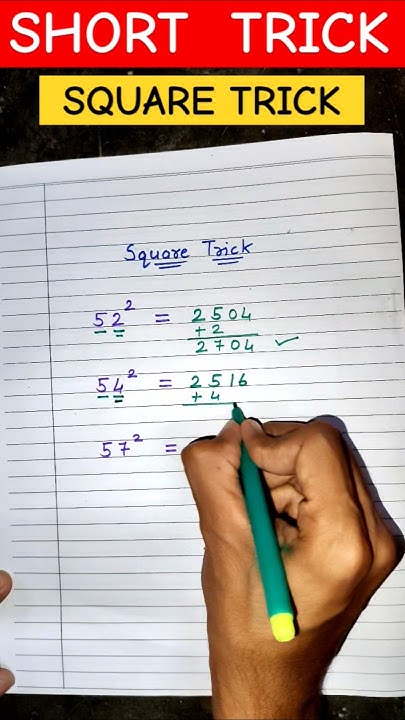 SHORT TRICK
SQUARE TRICK
Square Trick
52² = 2504
+2
2704 ✓
54² = 2516
+4
57² =